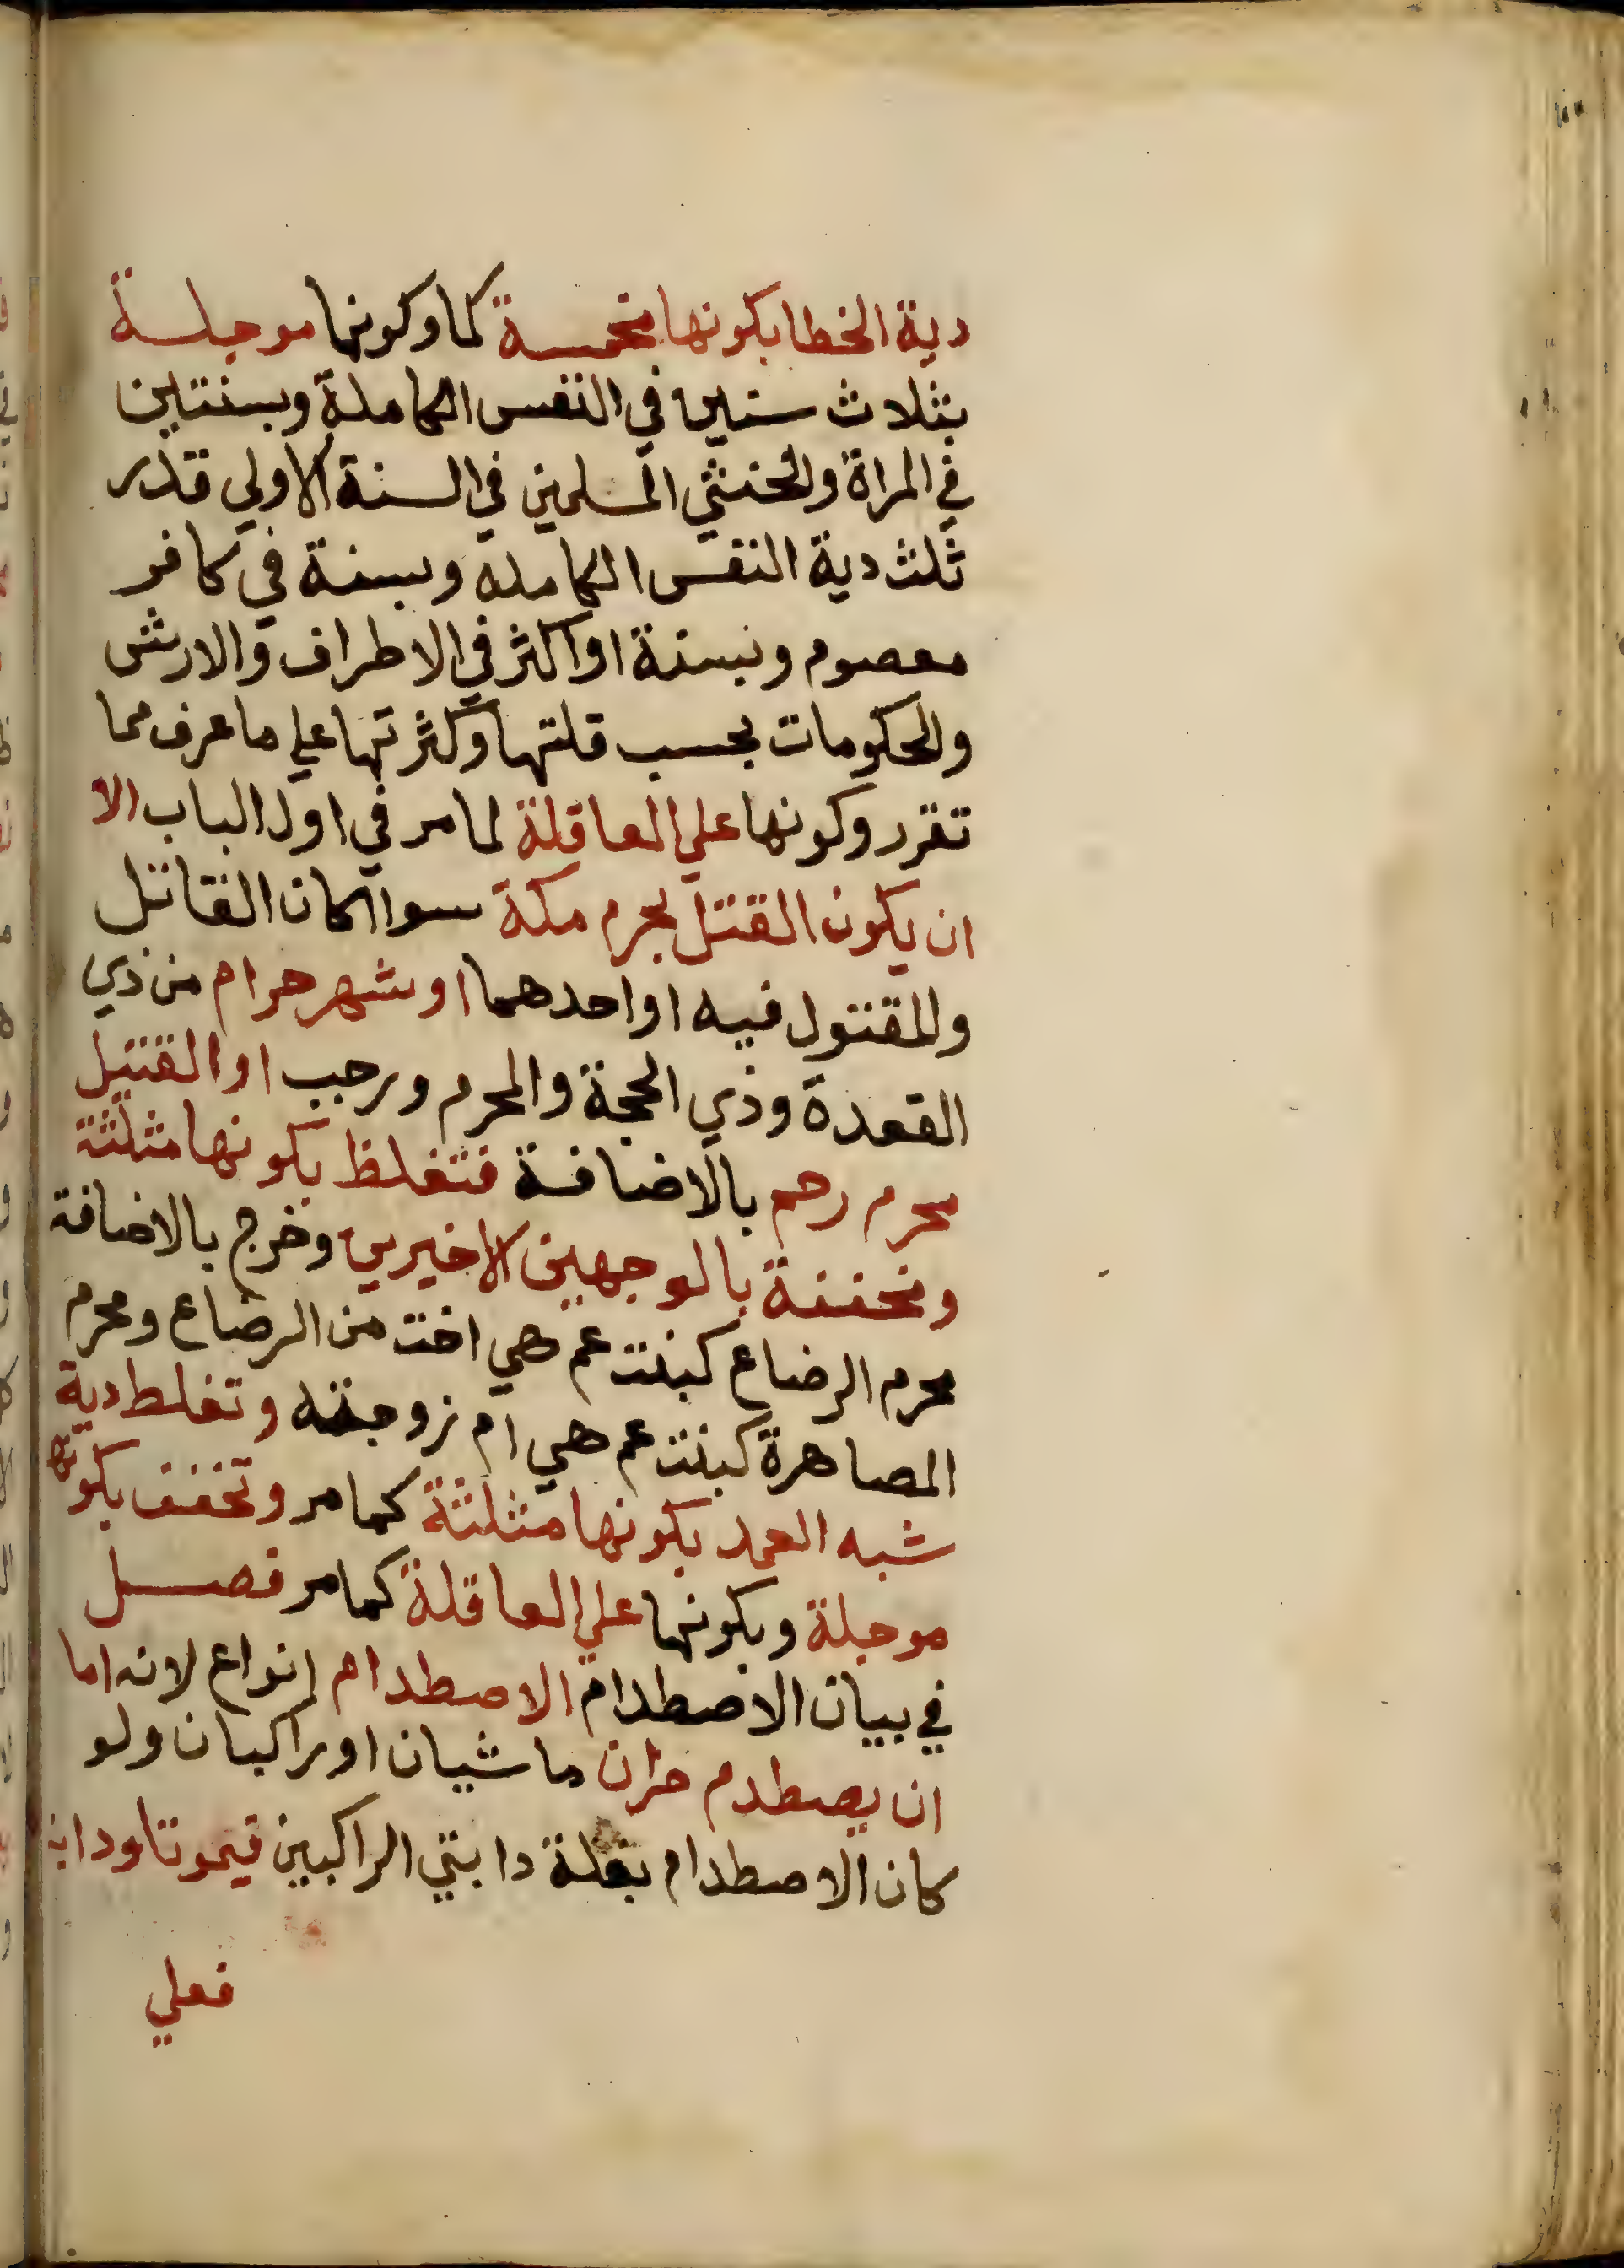 دية الخطا بكونها مخمسة كما وكونها موجلسة
بثلاث سنين في النفس الكاملة وبسنتين
في المراة والخنثي المسلمين في السنة الاولي قدر
ثلث دية النفس الكامله وبسنة في كافر
معصوم وبسنة او اكثر في الاطراف والارش
والحكومات بحسب قلتها وكثرتها علي ما عرف مما
تقرر وكونها علي العاقلة لما مر في اول الباب الا
ان يكون القتل بحرم مكة سوا كان القاتل
والمقتول فيه او احدهما او شهر حرام من ذي
القعدة وذي الحجة والمحرم ورجب او القتيل
محرم رحم بالاضافة فتغلظ بكونها مثلثة
ومخففة بالوجهين الاخيرين وخرج بالاضافة
محرم الرضاع كبنت عم هي اخت من الرضاع ومحرم
المصاهرة كبنت عم هي ام زوجته وتغلط دية
شبه العمد بكونها مثلثة كما مر وتخفف بكونها
موجلة وبكونها علي العاقلة كما مر فصل
في بيان الاصطدام الاصطدام انواع لانه اما
ان يصطدم حران ماشيان او راكبان ولو
كان الاصطدام بغلة دابتي الراكبين فيموتا ودابة
فعلي